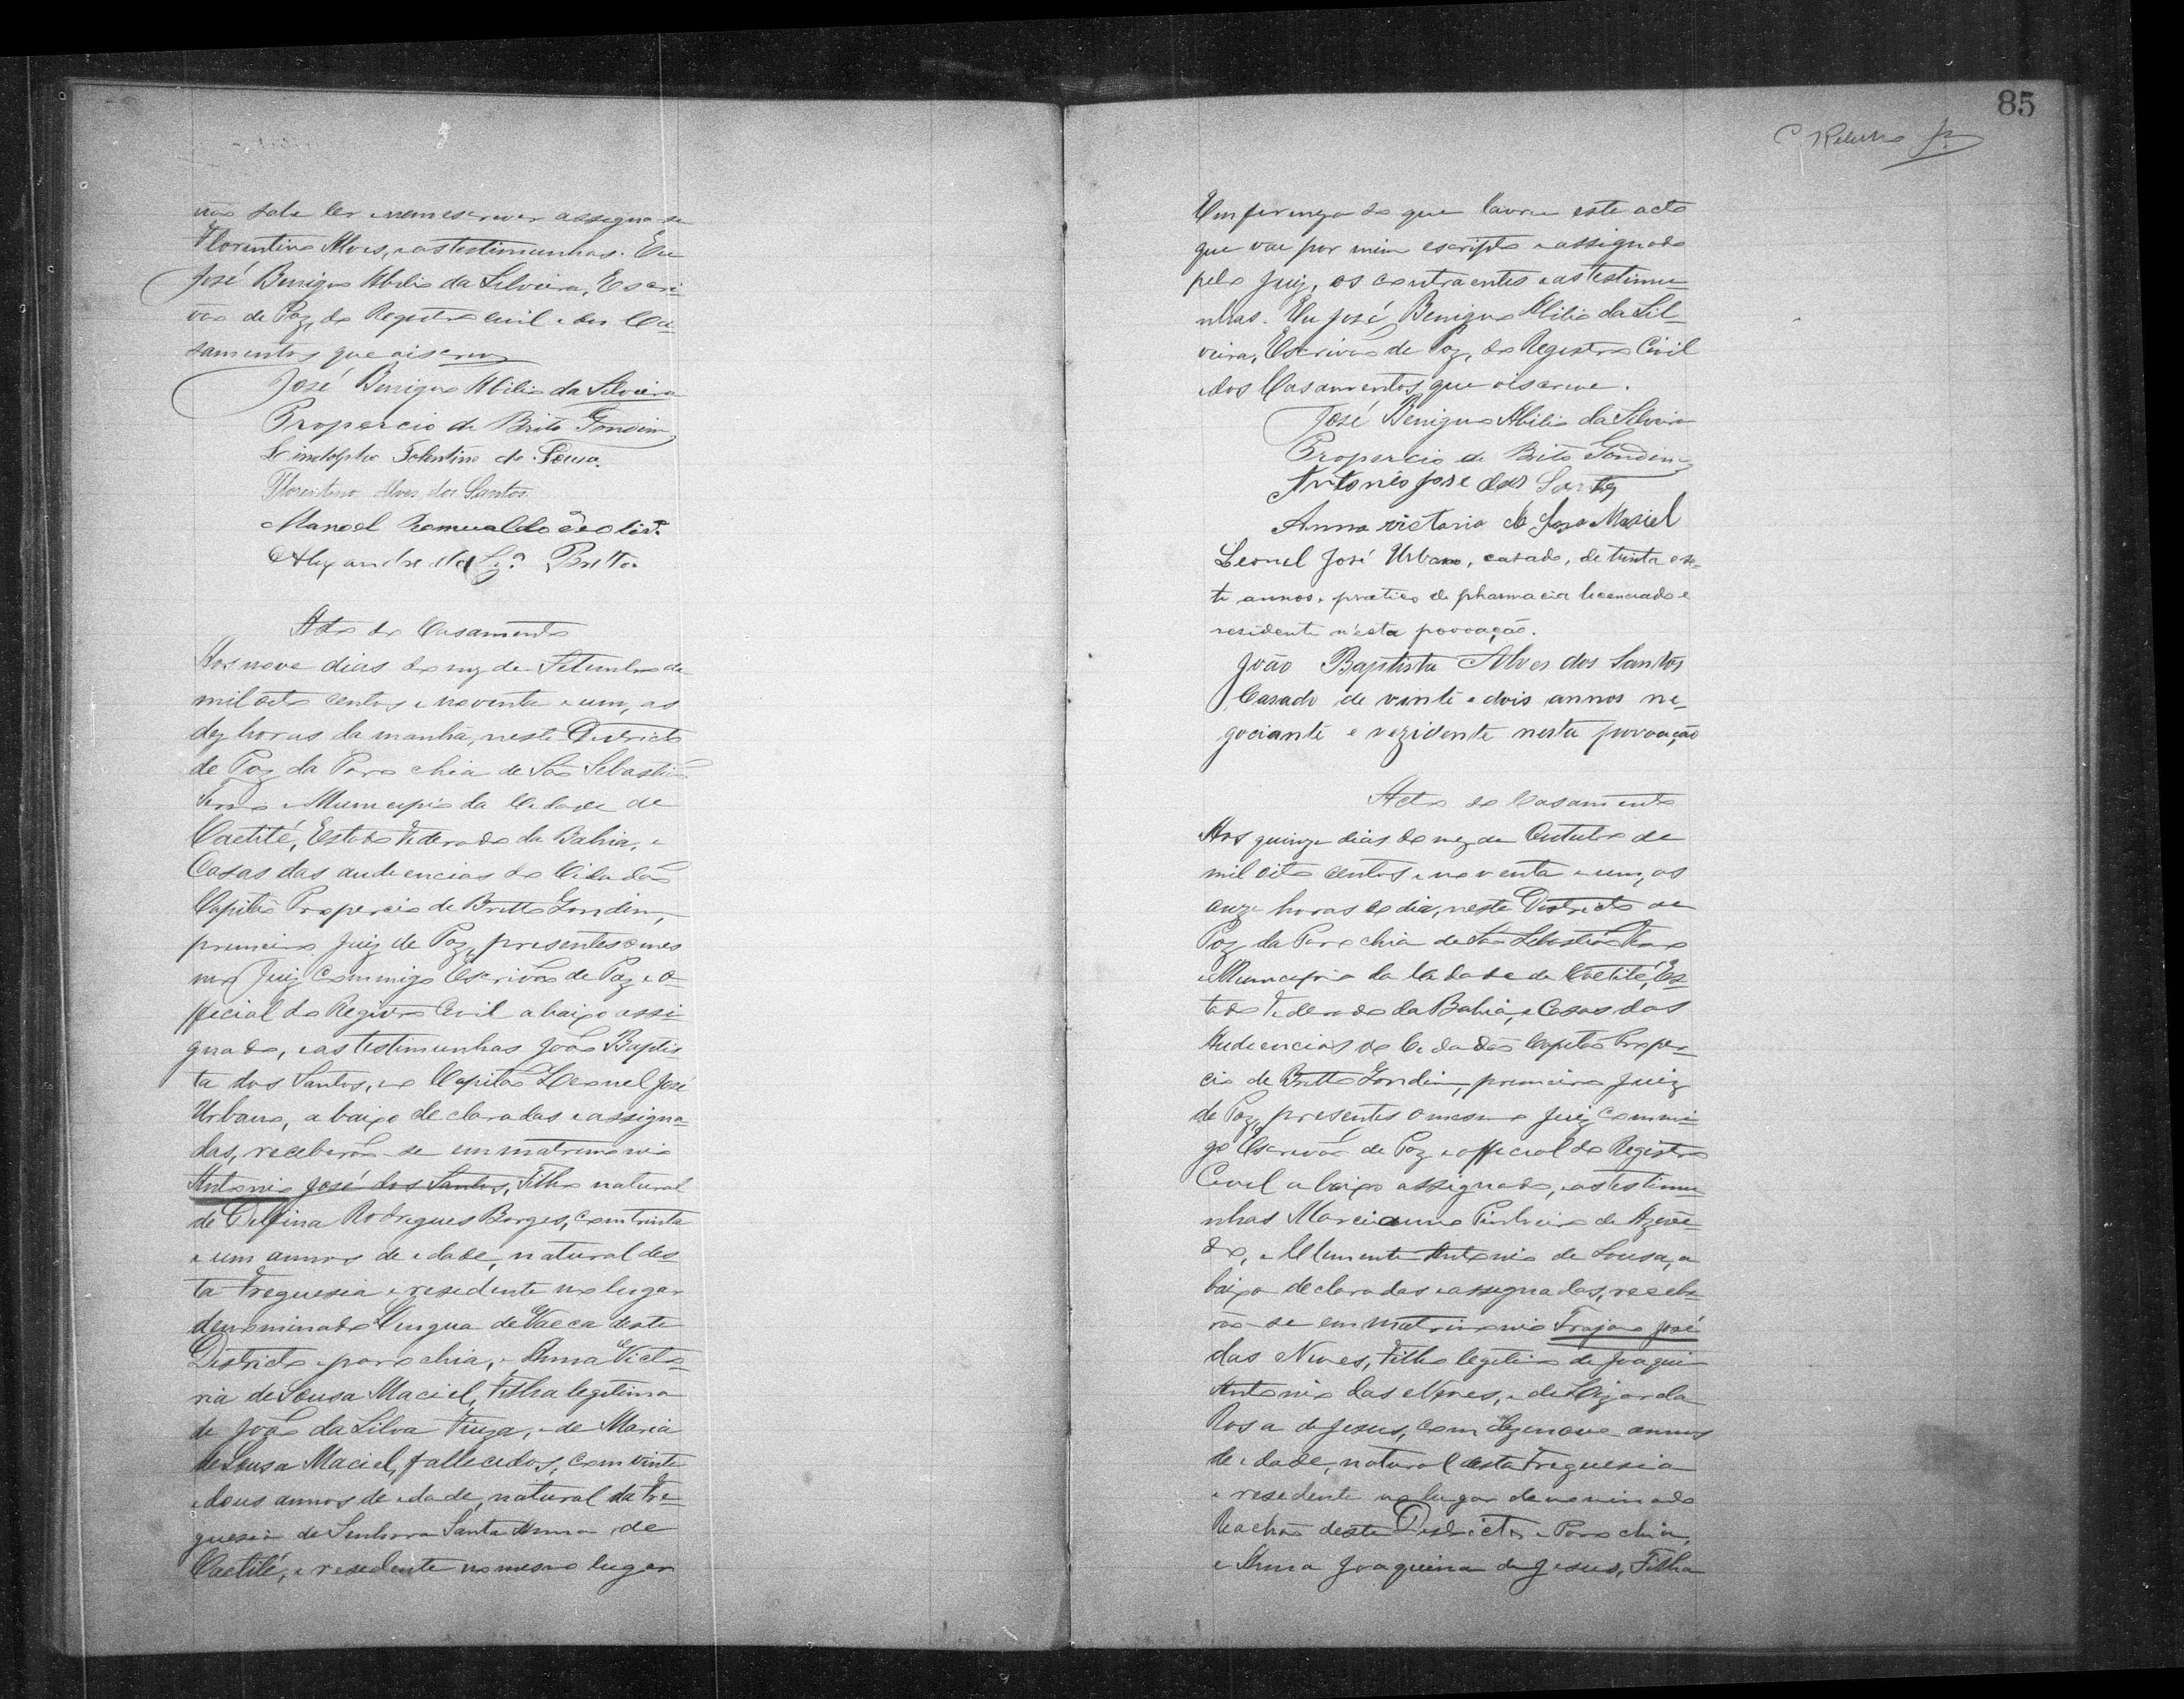 não sabe ler e nem escrever assigna-se
Florentino Alves, e as testimunhas. Eu
José Benigno Abilio da Silveira, Escri-
vão de Paz, do Registro Civil e dos Ca-
samentos que o iscrevy
José Benigno Abilio da Silveira
Propercio de Brito Gondim
Lindolpho Tolentino de Sousa.
Florentino Alves dos Santos
Manoel Romualdo de Olivª
Alexandre da Britto
Acto do Casamento
Aos nove dias do mez de Setembro de
mil oito centos e noventa e um, as
dez horas da manhã, neste Districto
de Paz da Parochia de São Sebastião
Termo e Municipio da Cidade de
Caetité, Estado Federado da Bahia, e
Casas das audiencias do Cidadão
Capitão Propercio de Britto Gondim,
primeiro Juiz de Paz, presentes o mes
mo Juiz Commigo Escrivão de Paz e o-
fficial do Registro Civil abaixo assi-
gnado, e as testimunhas João Baptis
ta dos Santos, e o Capitão Leonel José
Urbano, abaixo declaradas e assigna-
das, receberão-se em matrimonio
Antonio José dos Santos, Filho natural
de Delfina Rodrigues Borges, com trinta
e um annos de edade, natural des-
ta Freguesia e residente no lugar
denominado Lingua de Vacca deste
Districto e parochia, e Anna Victo-
ria de Sousa Maciel, Filha legitima
de João da Silva Fiuza, e de Maria
de Sousa Maciel, fallecidos, com vinte
e dous annos de edade, natural da Fre-
guesia de Senhora Santa Anna de
Caetité, e residente no mesmo lugar
85
C Ribeiro Jr.
Em firmeza do que lavrei este acto
que vae por mim escripto e assignado
pelo Juiz, os contraentes e as testimu-
nhas. Eu José Benigno Abilio da Sil-
veira, Escrivão de Paz, do Registro Civil
e dos Casamentos que o iscreve.
José Benigno Abilio da Silveira
Propercio de Brito Gondim
Antonio José dos Santos
Anna victoria de Maciel
Leonel José Urbano, casado, de trinta e se-
te annos, pratico de pharmacia licenciado e
residente n'esta povoação.
João Baptista Alves dos Santos
Casado de vinte e dois annos ne-
gociante e rezidente nesta povoação
Acto do Casamento
Aos quinze dias do mez de Outubro de
mil oito centos e noventa e um, as
onze horas do dia, neste Districto de
Paz da Parochia de São Sebastião Termo
e Municipio da Cidade de Caetité, Es-
tado Federado da Bahia, e Casas das
Audiencias do Cidadão Capitão Proper-
cio de Britto Gondim, primeiro Juiz
de Paz, presentes o mesmo Juiz commi-
go Escrivão de Paz e official do Registro
Civil abaixo assignado, e as testimu
nhas Marcianno Pinheiro de Azeve-
do, e Clemente Antonio de Sousa, a
baixo declaradas e assignadas, recebe-
rão-se em matrimonio Trajano José
das Neves, Filho legitimo de Joaquim
Antonio das Neves, e de Lizarda
Rosa de Jesus, com dezenove annos
de edade, natural desta Freguesia
e residente no lugar denominado
Riachão deste Districto e Parochia,
e Anna Joaquina de Jesus, Filha